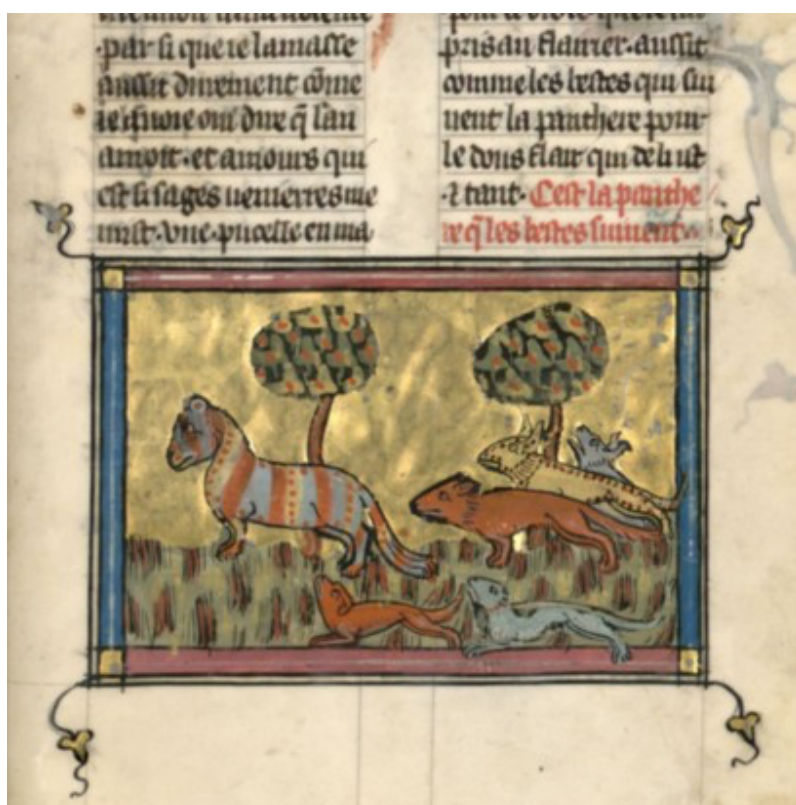 ·par si que ie lamasse
aussit durement cōme
oui dire q̄ lan
amoit · et amours qui
est si sages uenierres me
mist · vne pucelle en ma
pris au flairier · aussit
comme les bestes qui sui
uent la panthere pour
le dous flair qui de li ist
·⁊ tant · Cest la panthe
re q̄ les bestes siuuent ·